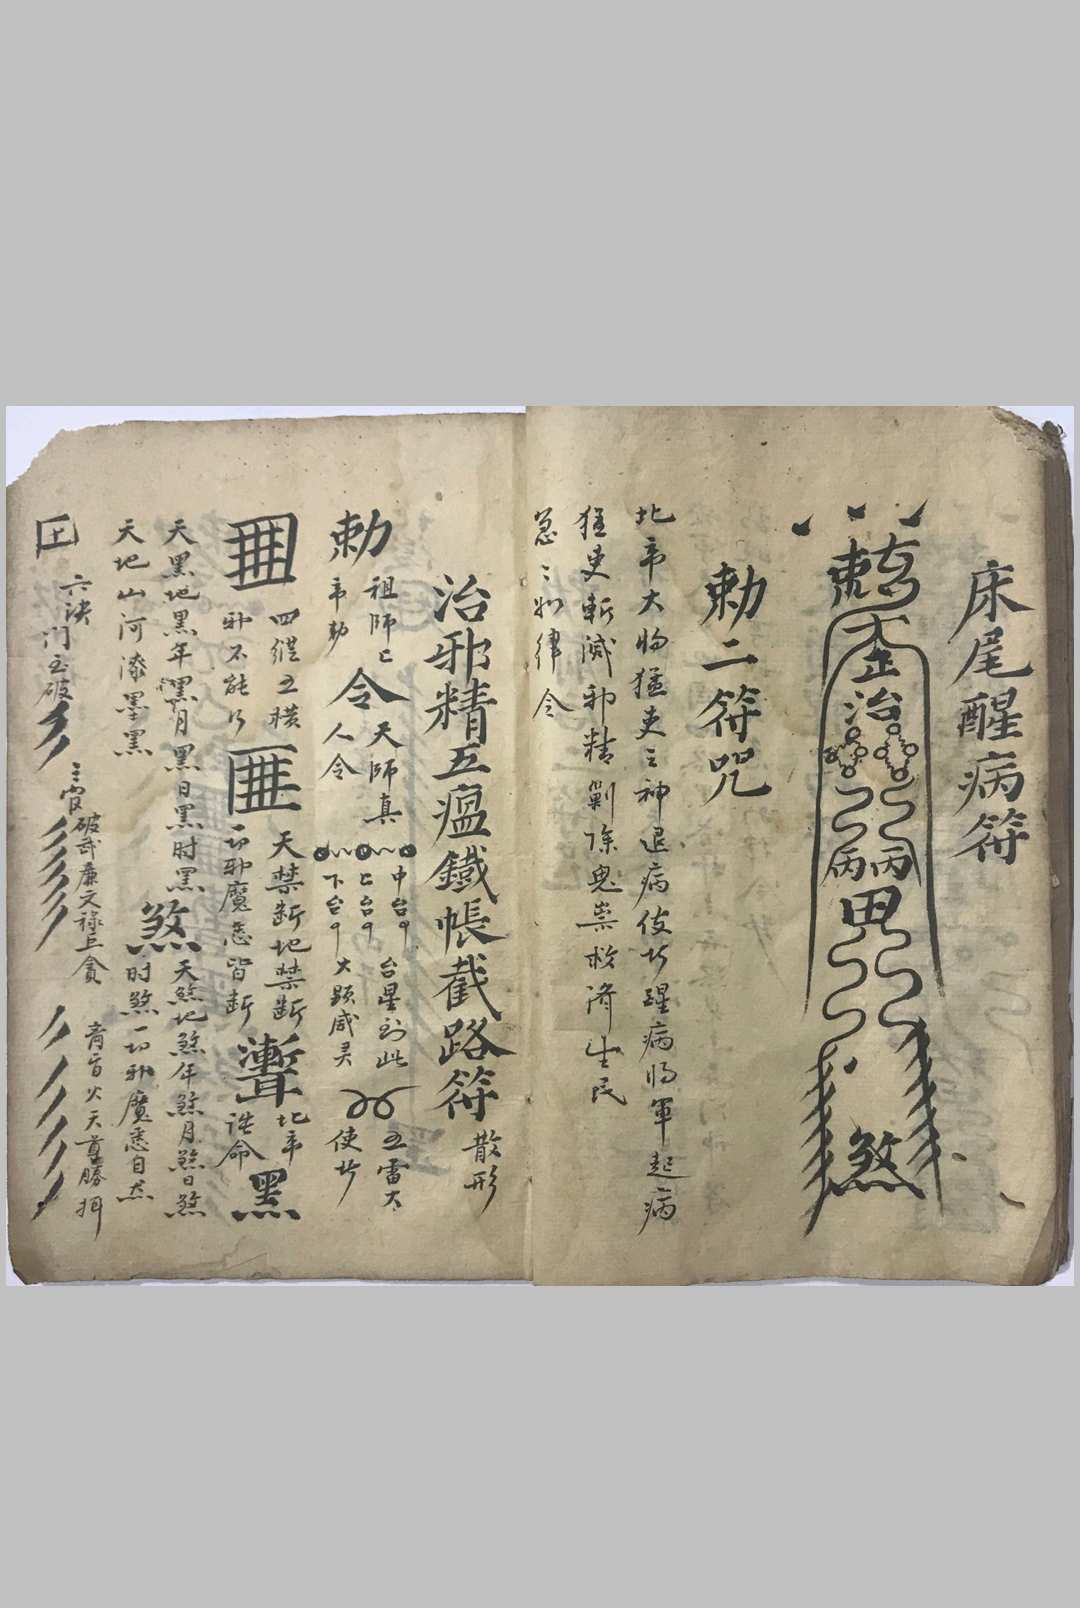 床尾醒病符
勅
治
丙丙
煞
勅二符咒
北帝大将猛吏之神退病伎者醒病将軍起病
猛吏斬滅邪精剿除鬼祟救濟生民
急〻如律令
治邪精五瘟鐵帳截路符 散形
勅 祖師〻 帝勅 令 天師真人令 中台 上台 下台 台星到此大顕威灵 五雷大使者
四縦五横邪不能行 天禁断地禁断 一切邪魔悉皆断 北帝誥命 黑
天黑地黑年黑月黑日黑时黑
天地山河漆墨黑 煞 天煞地煞年煞月煞日煞时煞一切邪魔悉自杰
六決門 破
破武廉文禄巨貪
火天尊勝